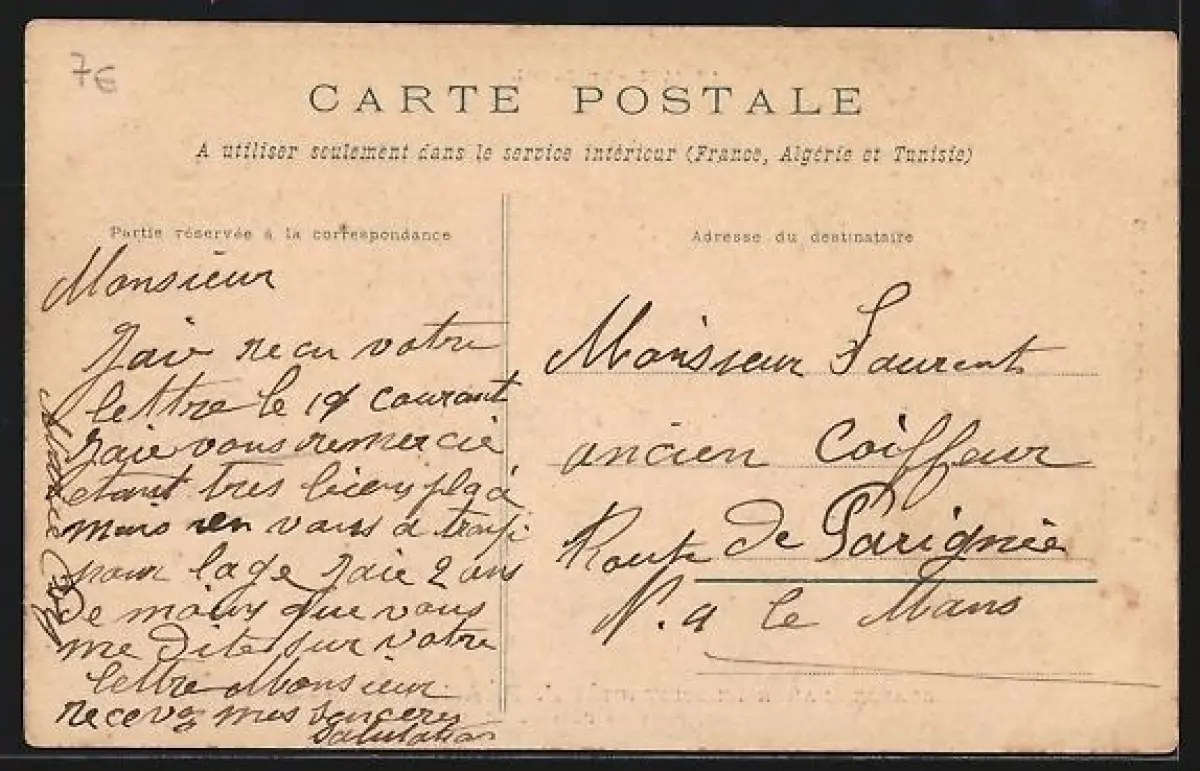 7€
CARTE POSTALE
A utiliser seulement dans le service intérieur (France, Algérie et Tunisie)
Partie réservée à la correspondance
Adresse du destinataire
Monsieur
Jaie recu votre
lettre le 19 courant
Jaie vous remercie
etant tres bien
mais vous a
pour lage Jaie 2 ans
De moins que vous
me Dite sur votre
lettre Monsieur
recevez mes sanceres
salutation
Monsieur Laurent
ancien Coiffeur
Route de Parignie
N. 9 le Mans